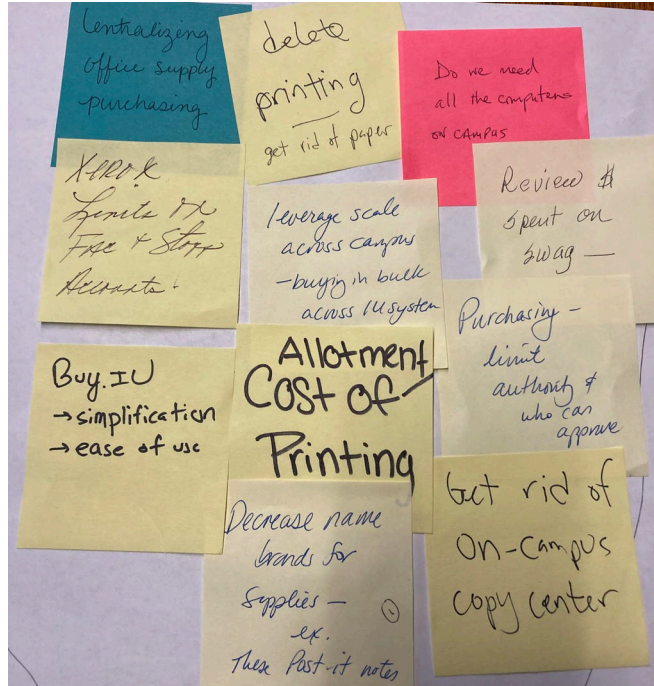 Centralizing
office supply
purchasing
delete
printing
get rid of paper
Do we need
all the computers
on campus
XEROX
Limits on
Fac + Staff
Accounts.
leverage scale
across campus
-buying in bulk
across IU system
Review $
spent on
swag —
Buy.IU
→ simplification
→ ease of use
Allotment
Cost of
Printing
Purchasing -
limit
authority &
who can
approve
Decrease name
brands for
supplies —
ex.
These Post-it notes
Get rid of
on-campus
copy center